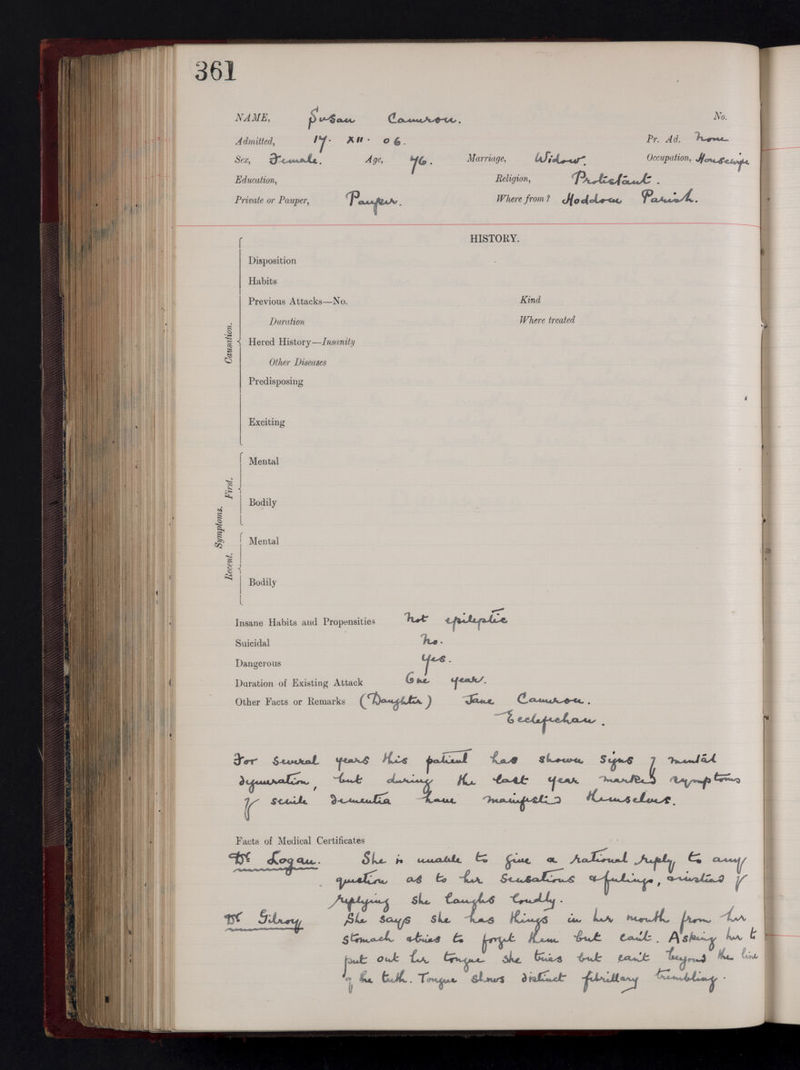 361
NAME, Susan Cameron. No.
Admitted, 17. XII. 06. Pr. Ad. None
Sex, Female. Age, 76. Marriage, Widow. Occupation, Housewife
Education, Religion, Protestant.
Private or Pauper, Pauper. Where from? Hoddom Parish.
HISTORY.
Disposition
Habits
Previous Attacks—No. Kind
Duration Where treated
Causation.
Hered History—Insanity
Other Diseases
Predisposing
Exciting
Symptoms.
First.
Mental
Bodily
Recent.
Mental
Bodily
Insane Habits and Propensities Not epileptic
Suicidal No.
Dangerous Yes.
Duration of Existing Attack One year.
Other Facts or Remarks (Daughter) Jane Cameron.
Ecclefechan.
For several years this patient has shown signs of mental
degeneration, but during the last year marked symptoms
of senile dementia have manifested themselves.
Facts of Medical Certificates
Dr Logan. She is unable to give a rational reply to any
question as to her sensations or feelings, instead of
replying she laughs loudly.
Dr Gilroy She says she has things in her mouth from her
stomach & tries to forget them but can't. Asking her to
put out her tongue she tries but can't beyond the line
of the teeth. Tongue shows distinct fibrillary trembling.